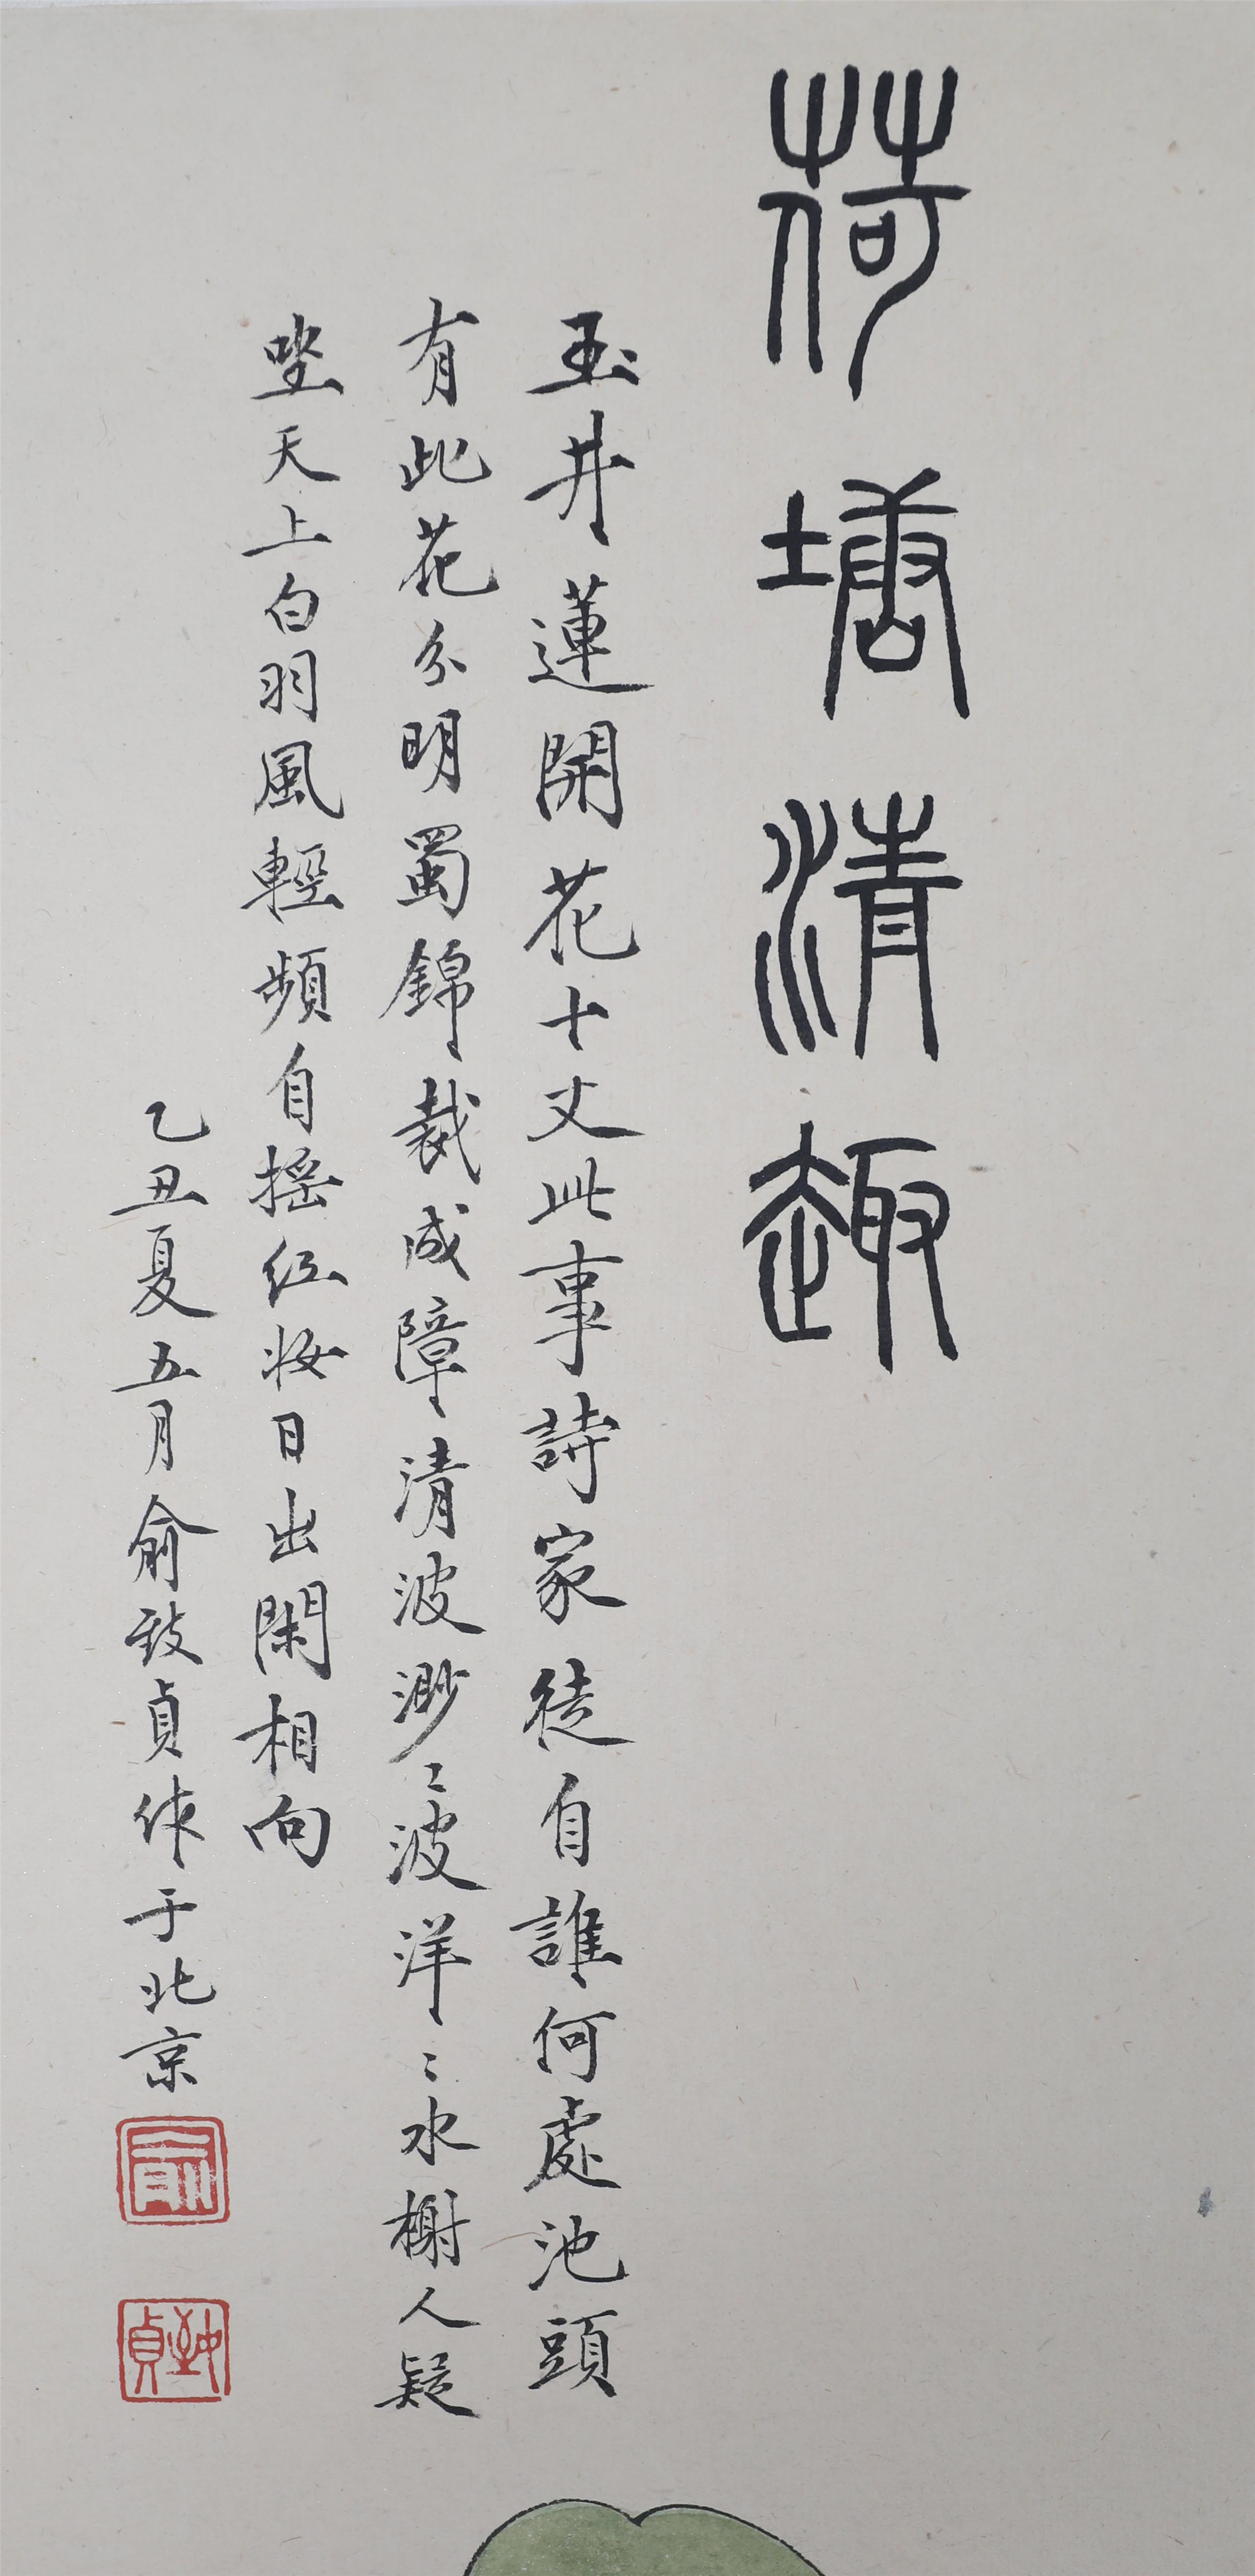 荷塘清趣
玉井蓮開花十丈此事詩家徒自誰何處池頭
有此花分明蜀錦裁成障清波渺〻波洋〻水榭人疑
坐天上白羽風輕頻自摇红妝日出閑相向
乙丑夏五月俞致貞作于北京
俞
致貞